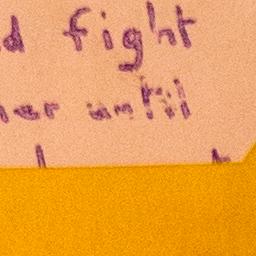 d fight
her until